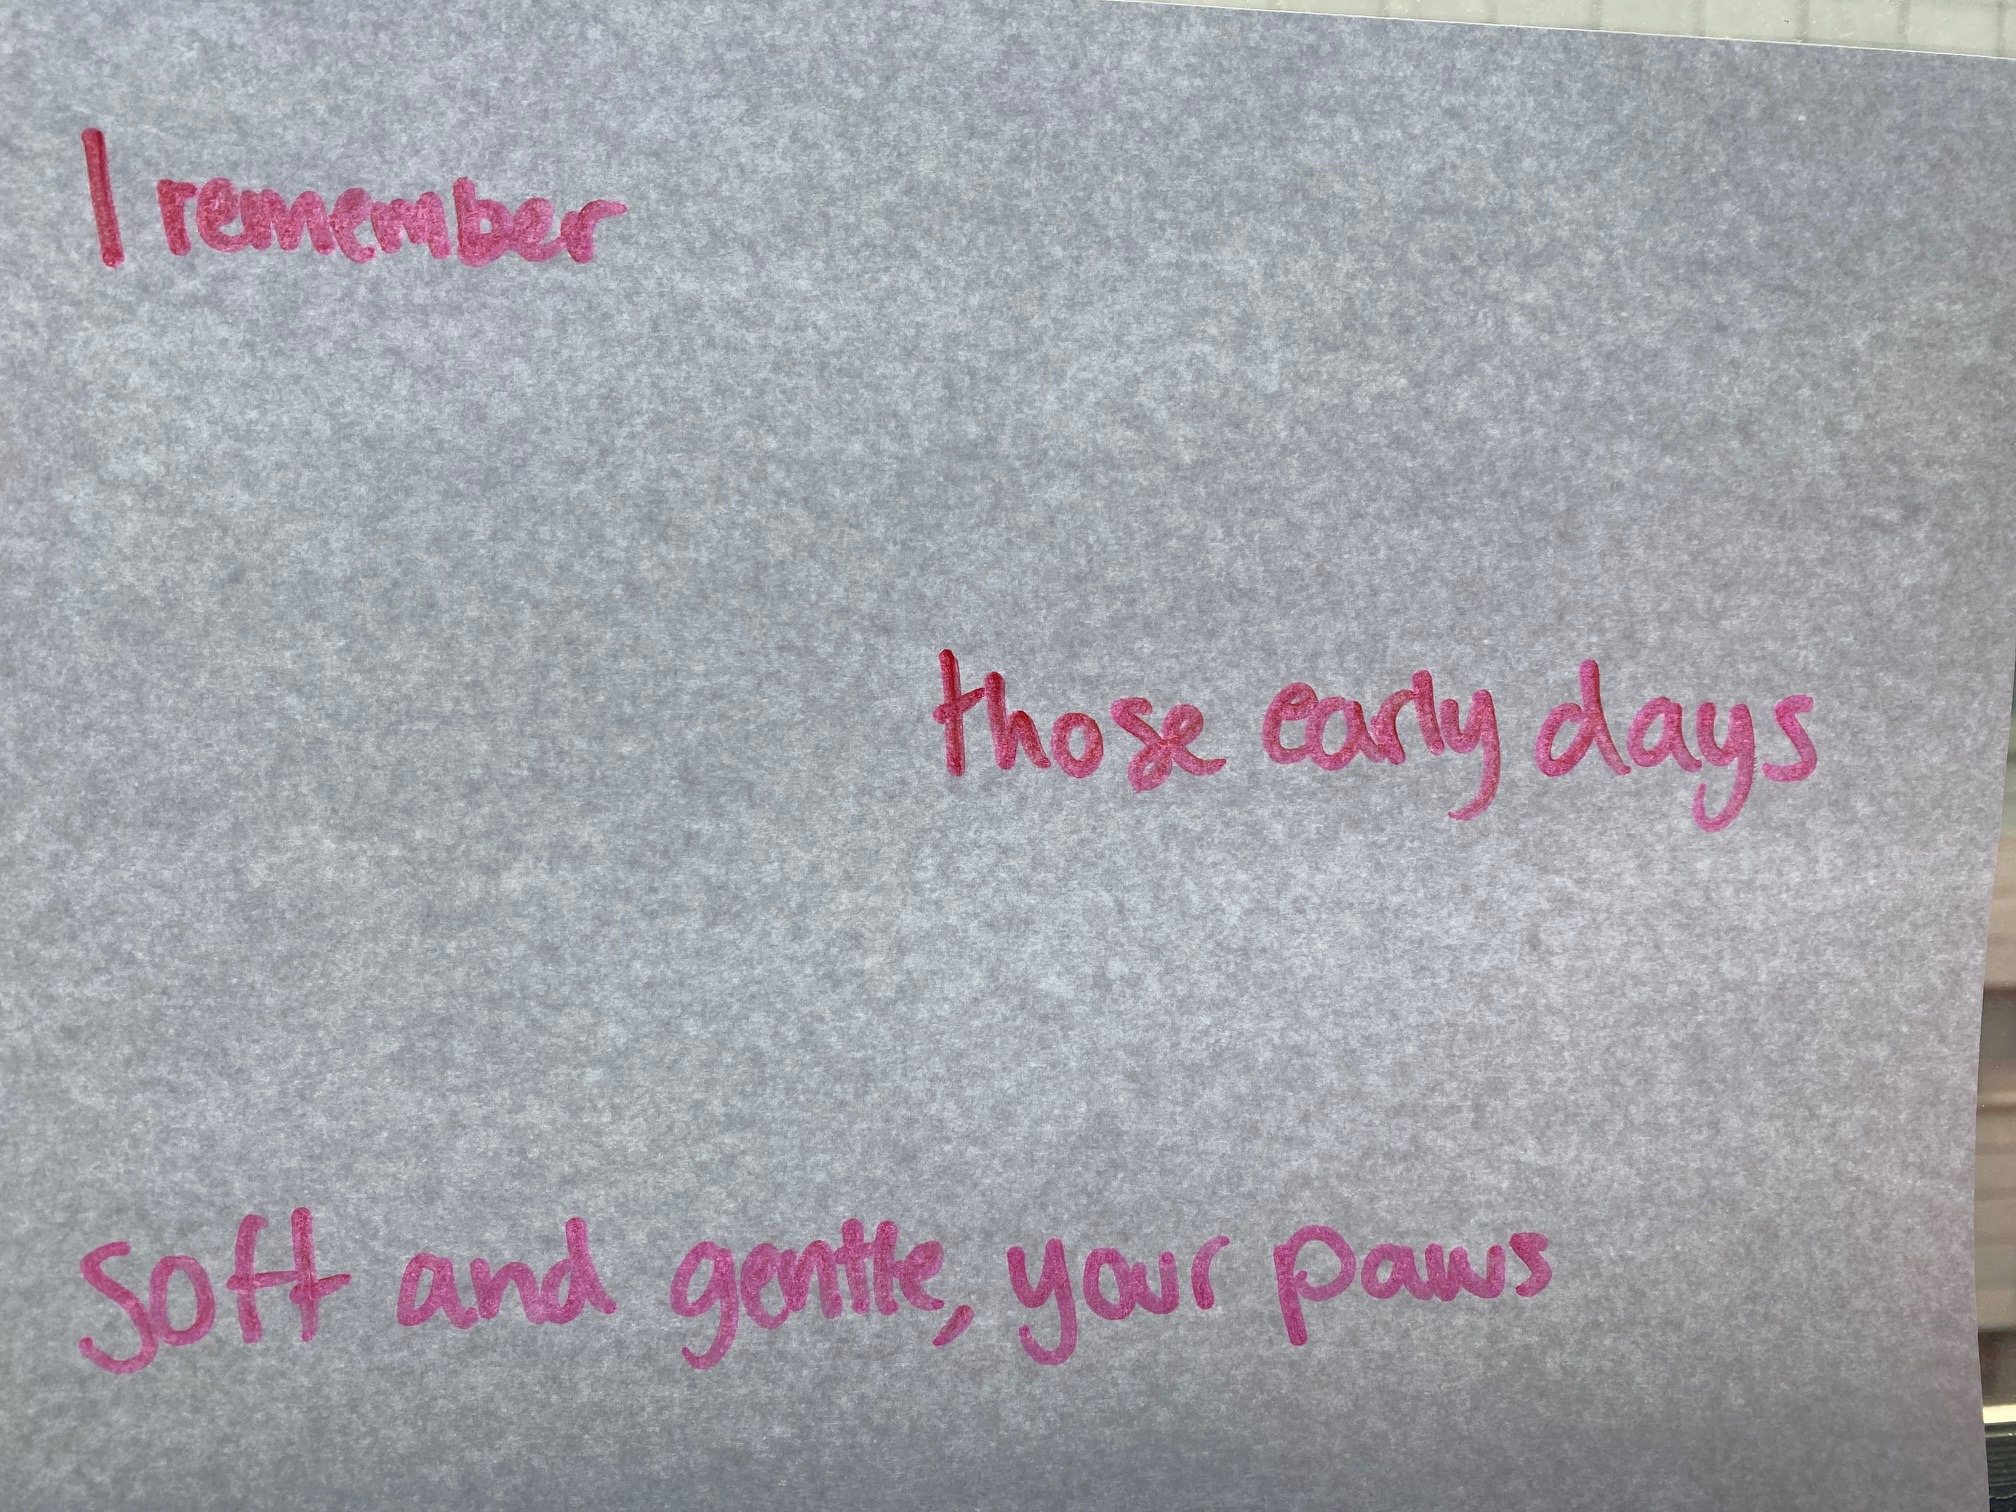 I remember
those early days
soft and gentle, your paws